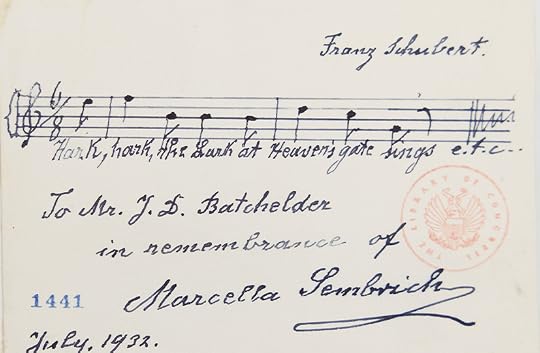 Franz Schubert.
6/8
Hark, hark, the Lark at Heaven's gate sings e.t.c--
To Mr. J. D. Batchelder
in remembrance of
THE LIBRARY OF CONGRESS
1441
Marcella Sembrich
July, 1932.